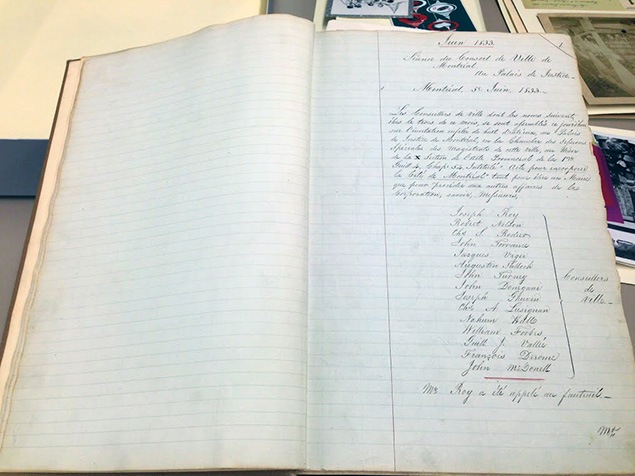 Juin 1833. 1
Séance du Conseil de Ville de
Montréal
au Palais de Justice
Montréal 5e Juin, 1833.
Les Conseillers de ville dont les noms suivent,
de ce mois, se sont assemblés ce jourd'hui
sur l'invitation de huit d'entre eux, au Palais
de Justice de Montréal, en la Chambre des Sessions
Spéciales des Magistrats de cette ville, au désir
de la X Section de l'acte Provincial de la 1re
Guil. 4, Chap. 54, Intitulé "Acte pour incorporer
la Cité de Montréal" tant pour élire un Maire
que pour procéder aux autres affaires de la
Corporation, savoir, Messieurs,
Joseph Roy
Robert Nelson
Chs S. Rodier
John Torrance
Jacques Viger
Augustin Tulloch
John Turney
John Donegani
Joseph
Chs A. Lusignan
Mahum Hall
William Forbes
Guill. J. Vallée
François Derome
John McDonell
Conseillers
de
Ville
Mr. Roy a été appelé au fauteuil